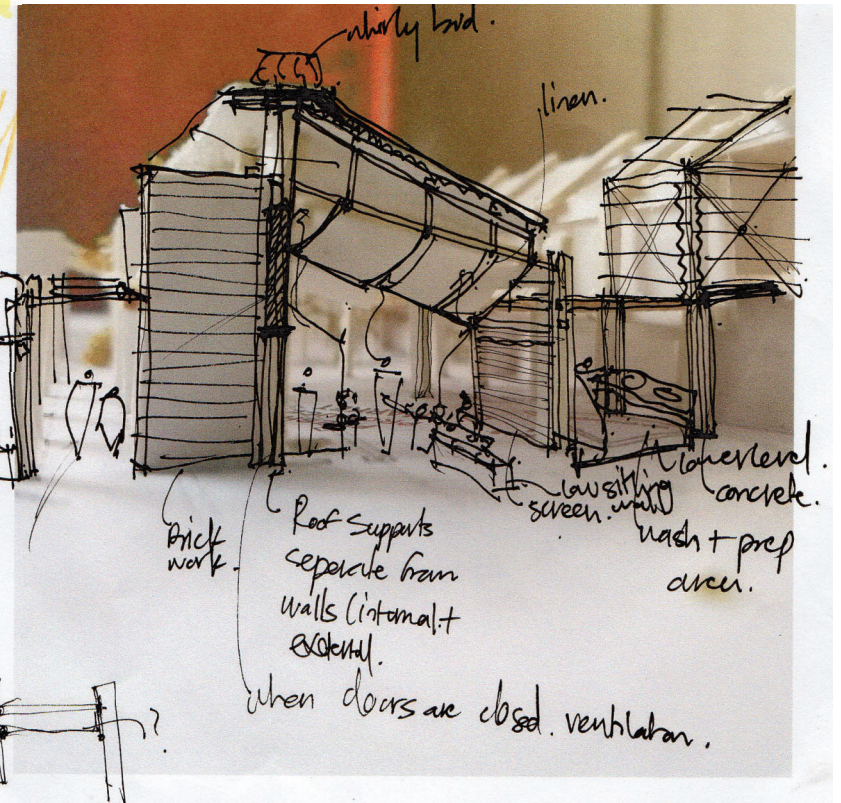 whirly bird.
linen.
Brick
work.
Roof Supports
seperate from
walls (internal +
external.
low sitting
screen. wall
lower level.
concrete.
wash + prep
area.
when doors are closed. ventilation.
?